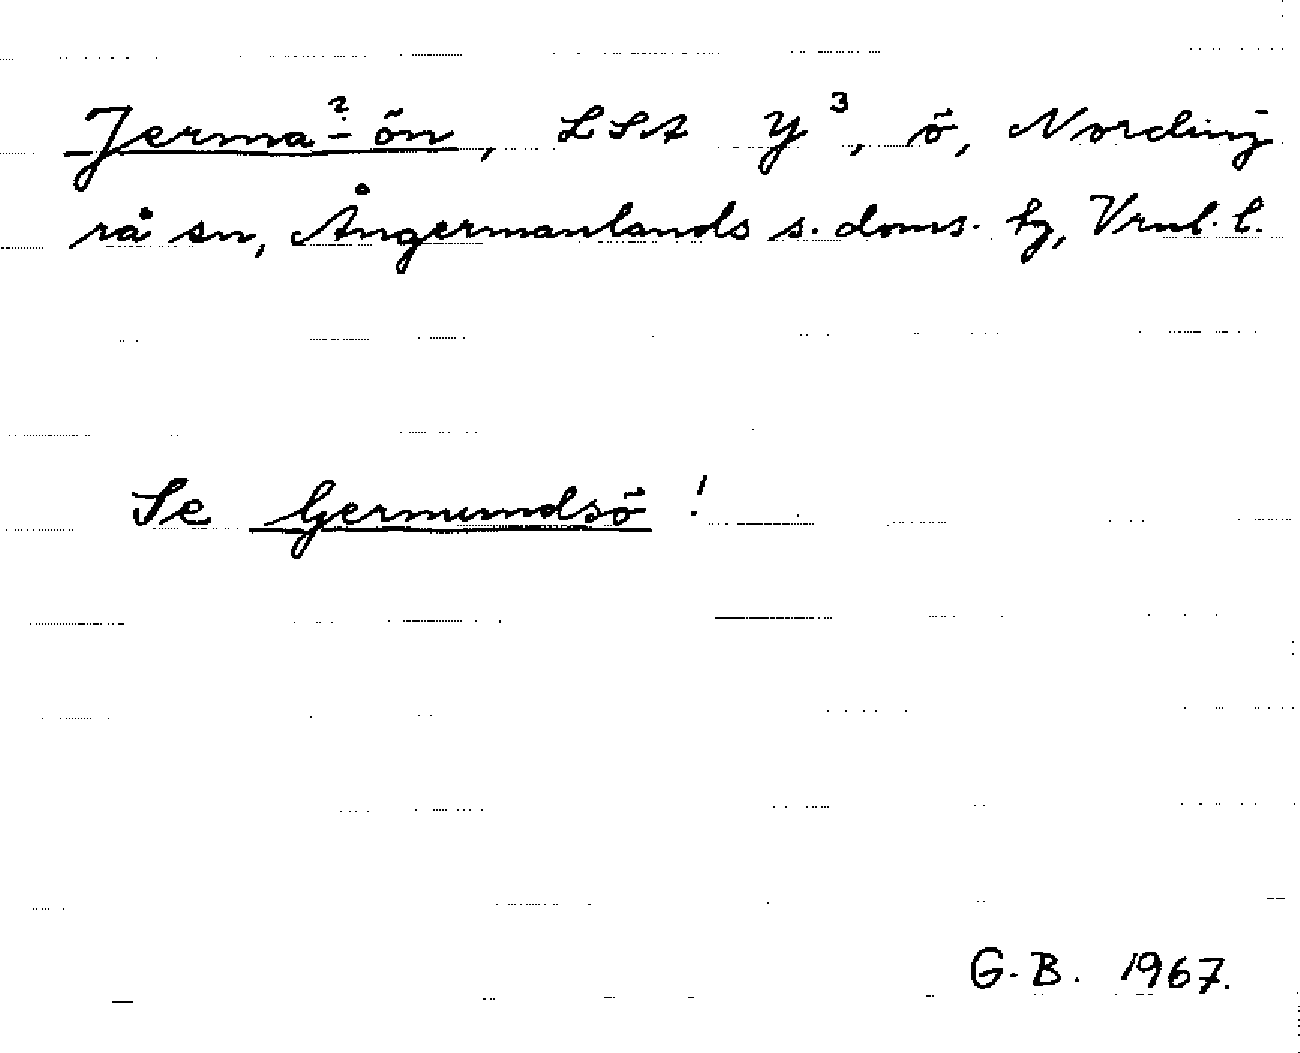 Jerma²-ön, LSA Y³, ö, Nording
rå sn, Ångermanlands s. doms. tg, Vrnl. l.
Se Germundsö!
G.B. 1967.